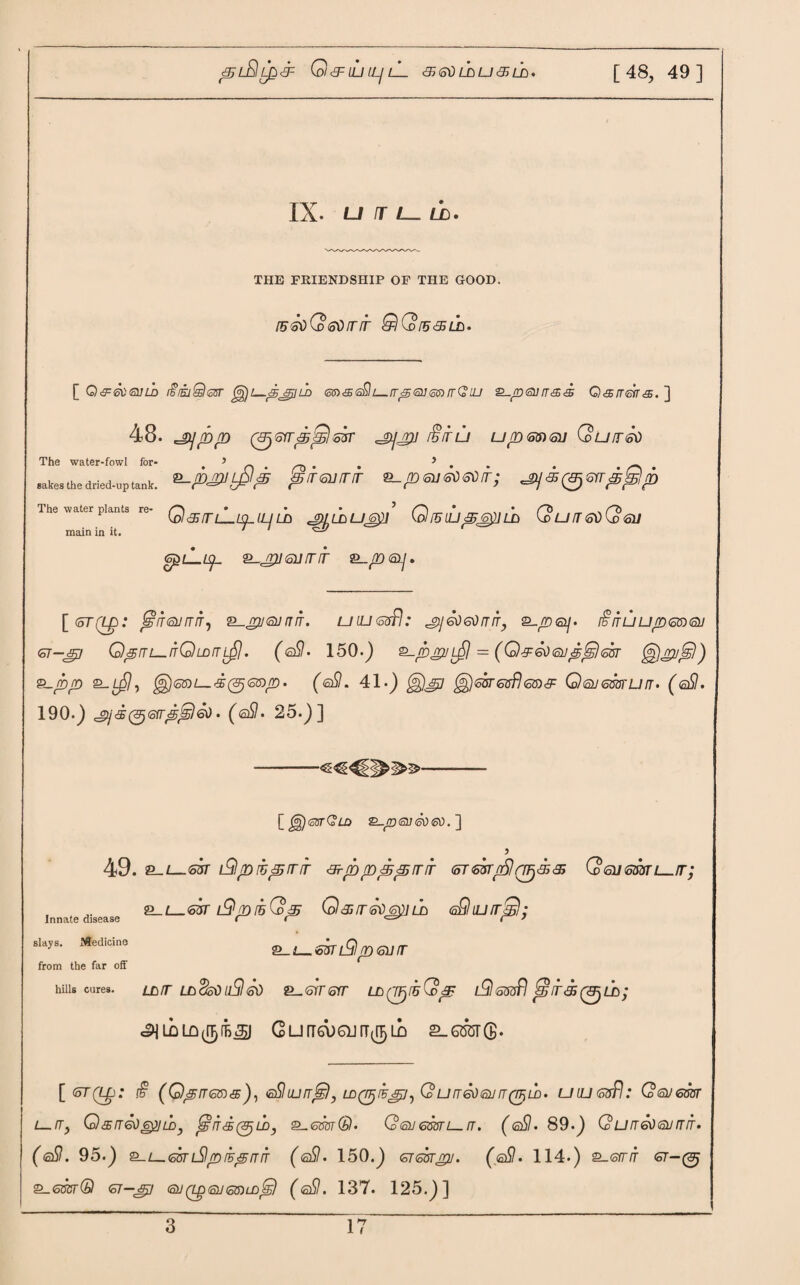 தமிழ்ச் செய்யுட் கலம்பகம். [48, 49]
IX. பாடம்.
THE FRIENDSHIP OF THE GOOD.
நல்லோர் ஸிநேகம்.
[செல்வம் நீங்கின இடத்தும் கைவிடாதவையோய உறவாகக் கொள்க.]
48. அற்ற குளத்தின் அறு நீர்ப் பறவைபோல்
The water-fowl for-
sakes the dried-up tank.
உற்றுழித் தீர்வார் உறவல்லர்; அக்குளத்திற்
The water plants re-
main in it.
கொட்டியும் ஆம்பலும் நெய்தலும் போலவே
ஒட்டி உறுவார் உறவு.
[எழு: தீர்வார், உறுவார். பயனி: அல்லார், உறவு. நீர்ப்பறவை
எ-து தொடர்மொழி. (வி. 150.) உற்றுழி = (செல்வத்தின் இறுதி)
உற்ற உழி, இடைக்குறை. (வி. 41.) இது இன்னிசை வெண்பா. (வி.
190.) அக்குளத்தில். (வி. 25.)]
[இன்மே உறவல்ல.]
49. உடன் பிறந்தார் சுற்றத்தார் என்றிருக்க வேண்டா;
Innate disease
உடன் பிறந்தே கொல்லும் வியாதி;
slays. Medicine
from the far off
உடன்பிறவா
hills cures.
மா மலையில் உள்ள மருந்தே பிணி தீர்க்கும்;
அம்மருந்து போல்வாரும் உண்டு.
[எழு: நீ (தொகை), வியாதி, மருந்து, போல்வாரும். பயனி: வேண்
டா, கொல்லும், தீர்க்கும், உண்டு. வேண்டா. (வி. 89.) போல்வார்.
(வி. 95.) உடன்பிறந்தார் (வி. 150.) என்று. (வி. 114.) உளார் எ-கு
உண்டு எ-து வழுவமைதி (வி. 137. 125.)]
3 17